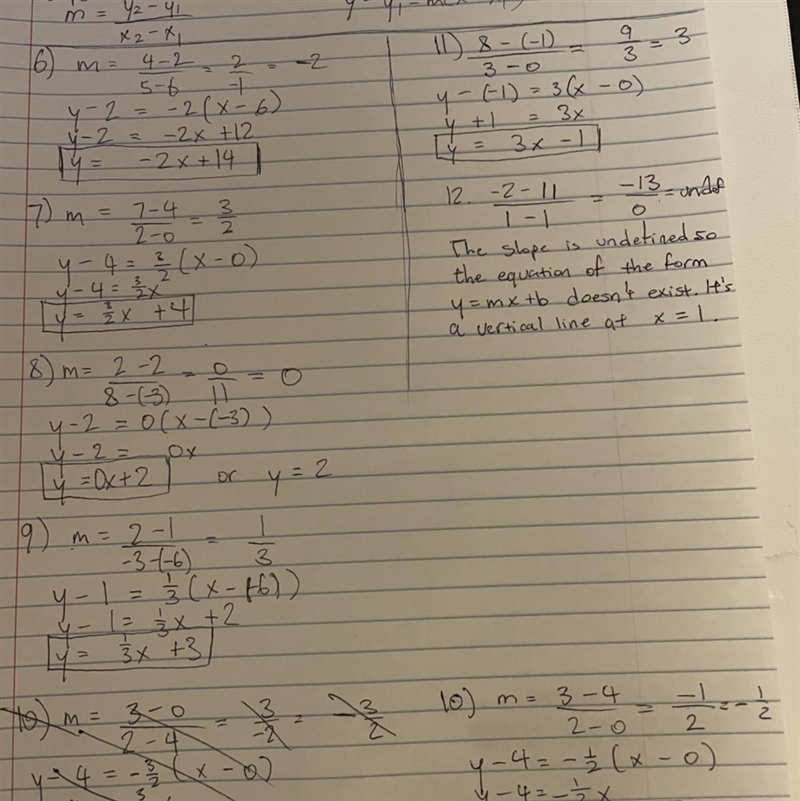 m = y₂ - y₁ / x₂ - x₁
6) m = 4-2 / 5-6 = 2 / -1 = -2
y - 2 = -2(x - 6)
y - 2 = -2x + 12
y = -2x + 14
7) m = 7-4 / 2-0 = 3 / 2
y - 4 = 3/2 (x - 0)
y - 4 = 3/2 x
y = 3/2 x + 4
8) m = 2-2 / 8-(-3) = 0 / 11 = 0
y - 2 = 0(x - (-3))
y - 2 = 0x
y = 0x + 2 or y = 2
9) m = 2-1 / -3-(-6) = 1 / 3
y - 1 = 1/3 (x - (-6))
y - 1 = 1/3 x + 2
y = 1/3 x + 3
10) m = 3-0 / 2-4 = 3 / -2 = -3/2
y - 4 = -3/2 (x - 0)
11) 8-(-1) / 3-0 = 9 / 3 = 3
y - (-1) = 3(x - 0)
y + 1 = 3x
y = 3x - 1
12. -2-11 / 1-1 = -13 / 0 = undef
The slope is undefined so
the equation of the form
y = mx+b doesn't exist. It's
a vertical line at x = 1.
10) m = 3-4 / 2-0 = -1 / 2 = -1/2
y - 4 = -1/2 (x - 0)
y - 4 = -1/2 x